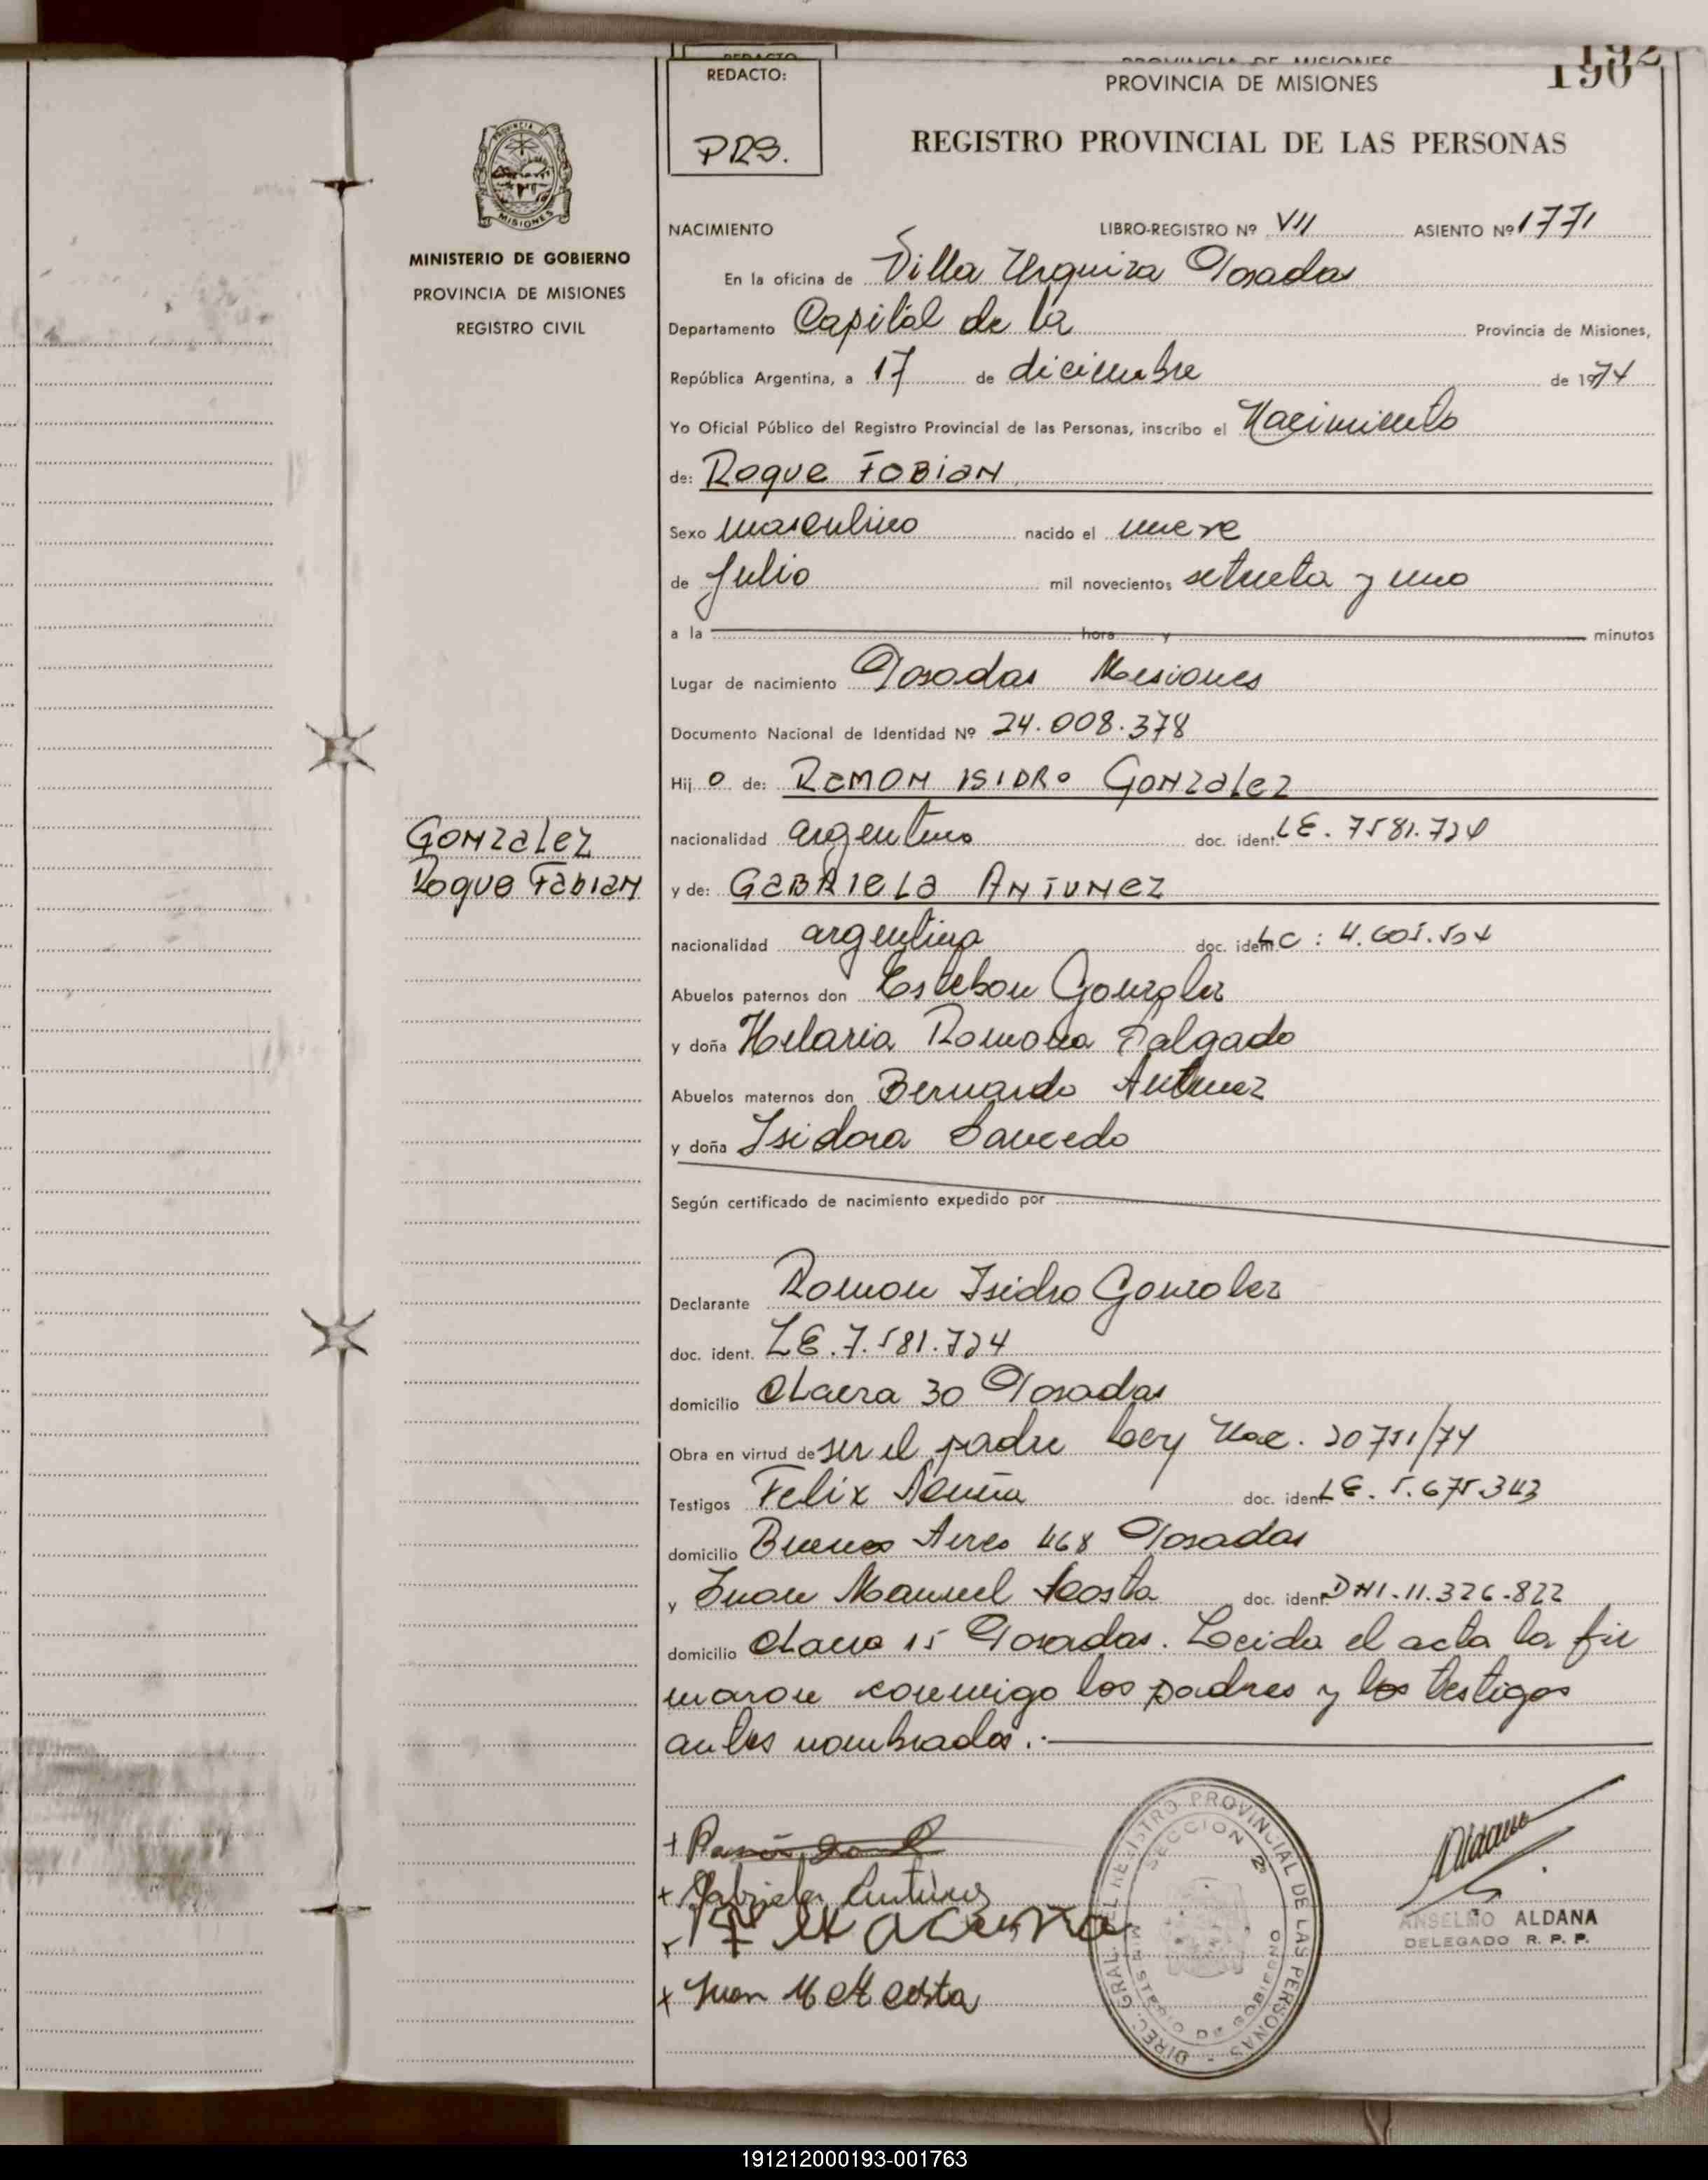 REDACTO:
PROVINCIA DE MISIONES
192
190
REDACTO:
PROVINCIA DE MISIONES
PRB.
REGISTRO PROVINCIAL DE LAS PERSONAS
PROVINCIA DE
MISIONES
MINISTERIO DE GOBIERNO
PROVINCIA DE MISIONES
REGISTRO CIVIL
NACIMIENTO LIBRO-REGISTRO Nº VII ASIENTO Nº 1771
En la oficina de Villa Urquiza Posadas
Departamento Capital de la Provincia de Misiones,
República Argentina, a 17 de diciembre de 1974
Yo Oficial Público del Registro Provincial de las Personas, inscribo el Nacimiento
de: Roque Fabian
Sexo masculino nacido el nueve
de Julio mil novecientos setenta y uno
a la hora y minutos
Lugar de nacimiento Posadas Misiones
Documento Nacional de Identidad Nº 24.008.378
Hijo de: Ramon Isidro Gonzalez
nacionalidad argentino doc. ident. LE. 7581.724
Gonzalez
Roque Fabian
y de: Gabriela Antunez
nacionalidad argentina doc. ident. LC:
Abuelos paternos don Esteban Gonzalez
y doña Hilaria Ramona Salgado
Abuelos maternos don Bernardo Antunez
y doña Isidora Saucedo
Según certificado de nacimiento expedido por
Declarante Ramon Isidro Gonzalez
doc. ident. LE.7.581.724
domicilio Chacra 30 Posadas
Obra en virtud de ser el padre Ley Nac. 20751/74
Testigos Felix Acuña doc. ident. LE. 5.675.343
domicilio Buenos Aires 468 Posadas
y Juan Manuel Acosta doc. ident. DNI.11.326.822
domicilio Chacra 15 Posadas. Leeida el acta la fir
maron conmigo los padres y los testigos
antes nombrados.-
+ Ramón
+ Gabriela Antunez
Felix acuña
x Juan M Acosta
DIREC. GRAL. DEL REGISTRO PROVINCIAL DE LAS PERSONAS
SECCION 2ª
MINISTERIO DE GOBIERNO
Aldana
ANSELMO ALDANA
DELEGADO R. P. P.
191212000193-001763